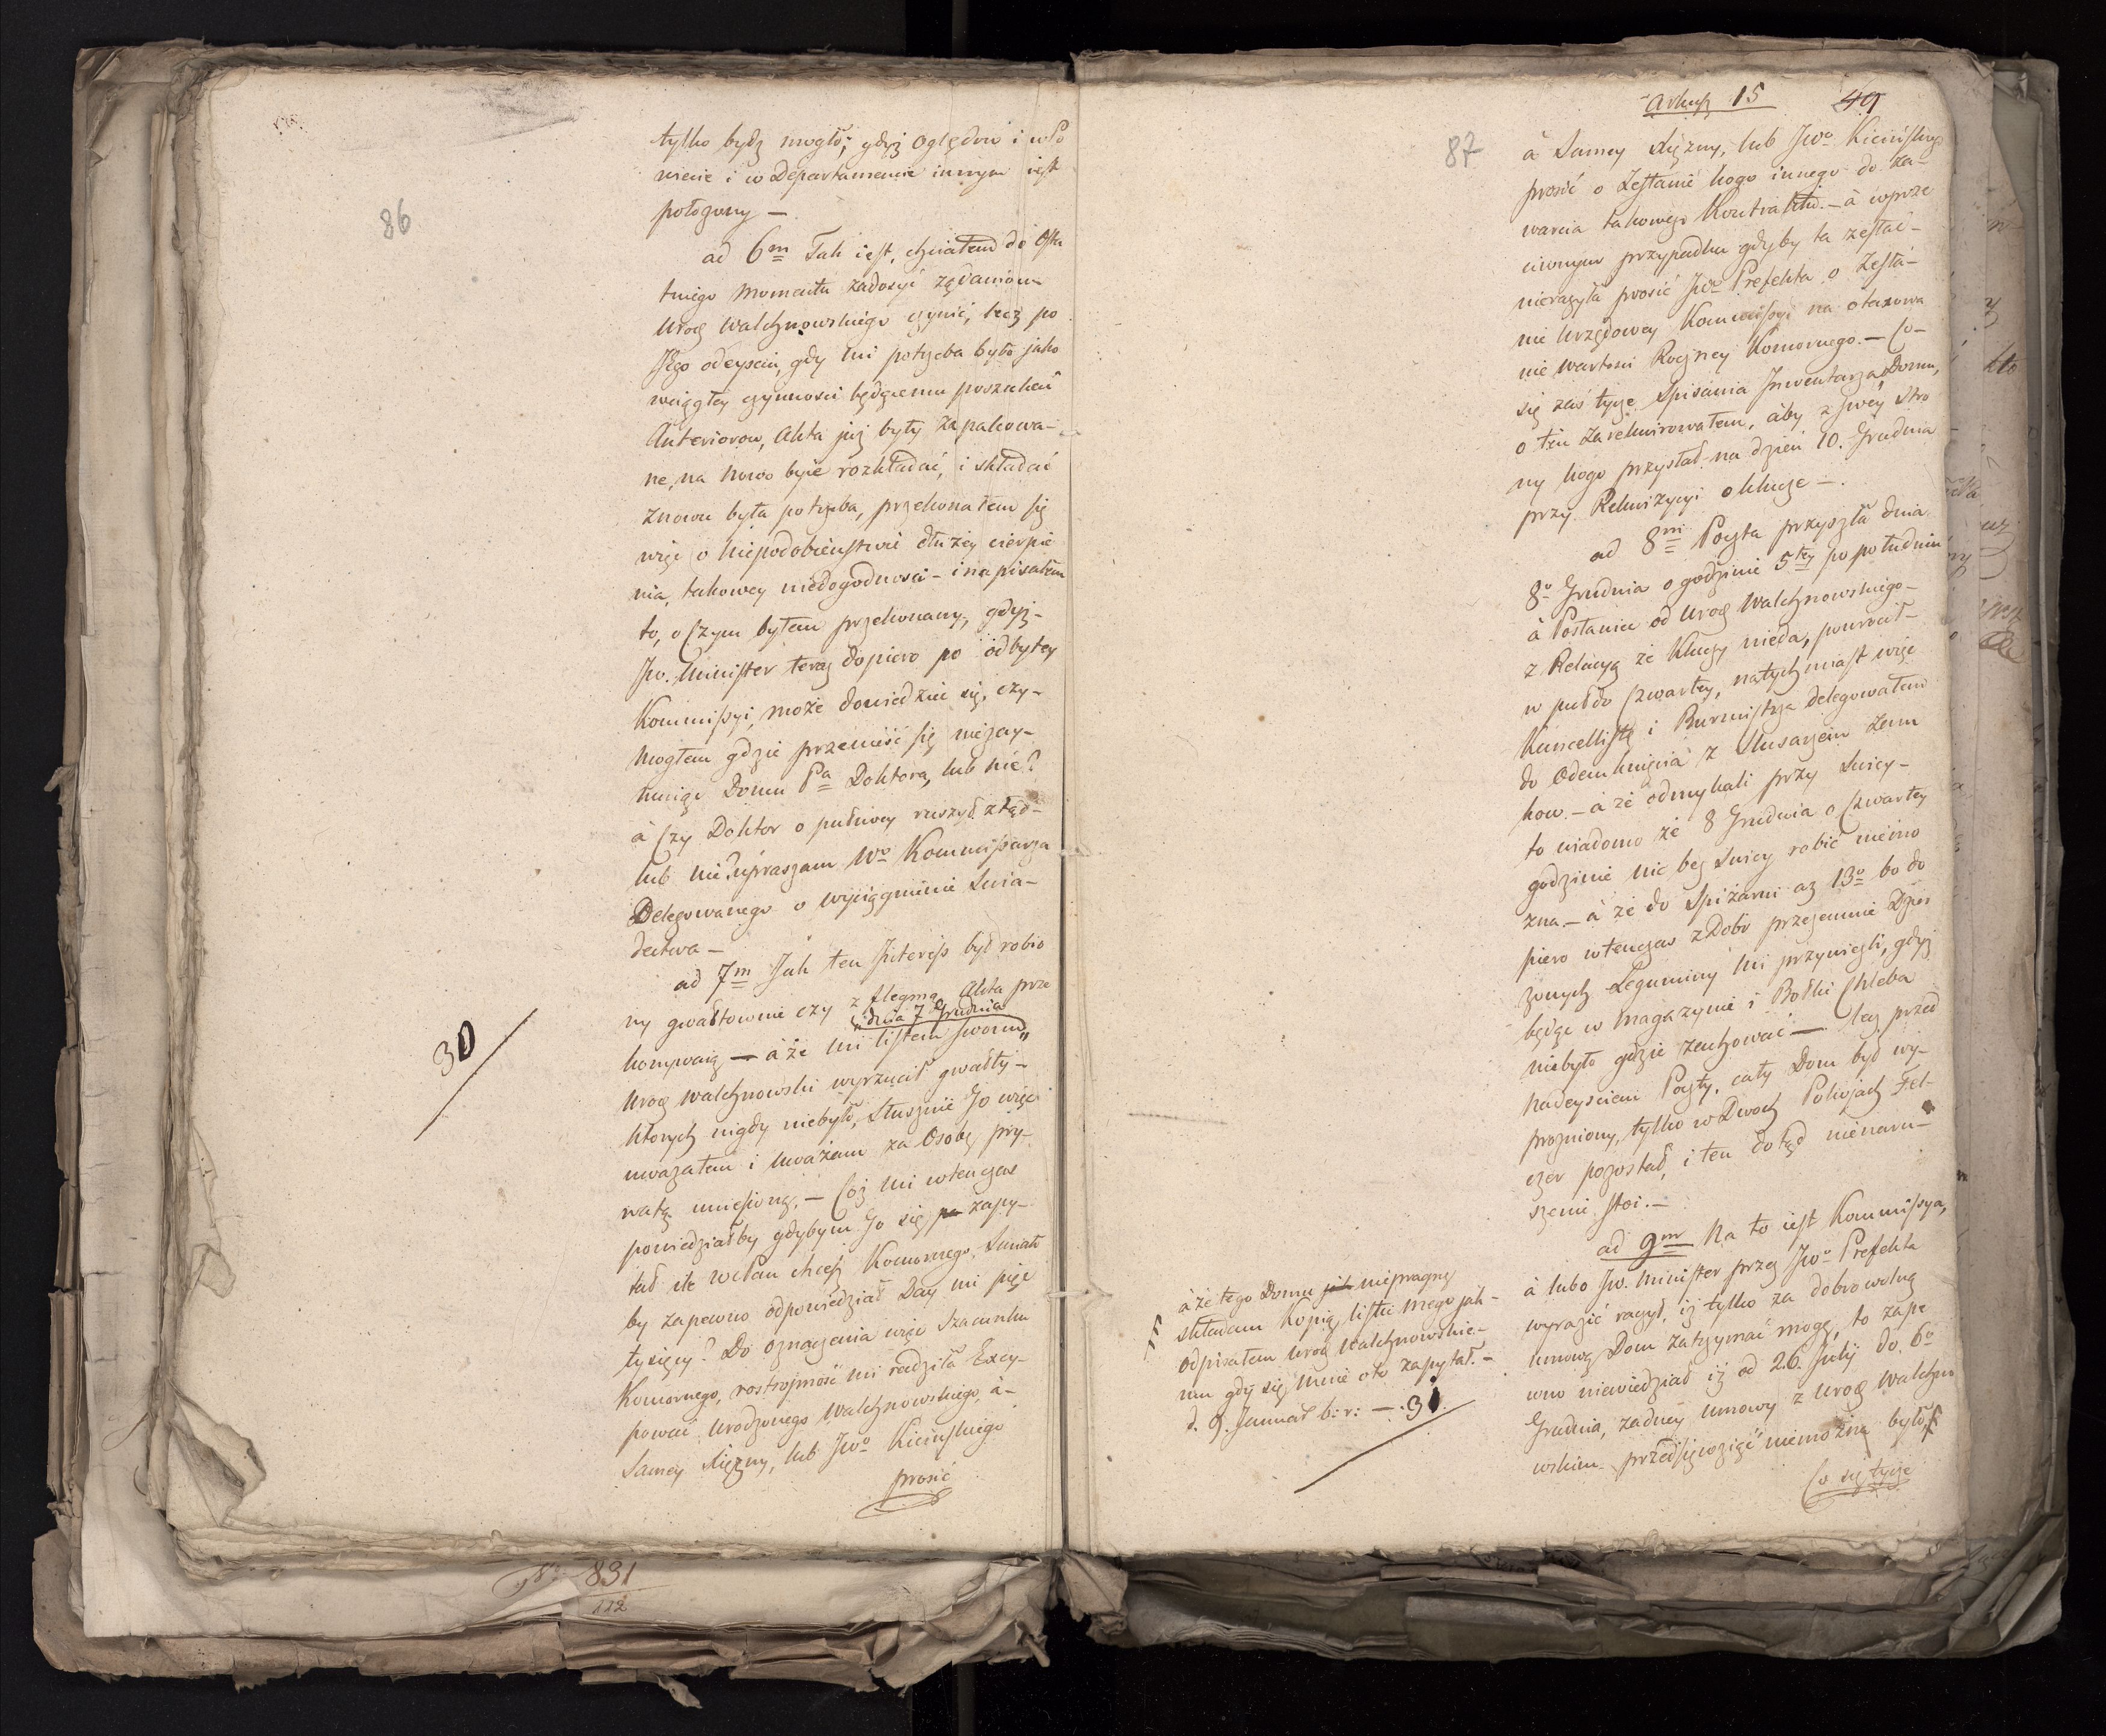 86
tylko bydź mogło; gdyż oględow i w Po
wiecie i w Departamencie innym iest
położony —
ad 6m Tak iest, chciałem do Osta
tniego Momentu zadosyć żądaniom
Uroę Walchnowskiego czynić, lecz po
Jego odeysciu, gdy mi potrzeba było jako
w ciągłey czynnosci będącemu poszukać
Anteriorow, Akta już były zapakowa-
ne, na nowo by ie rozkładać, i składać
znowu była potrzeba, przekonałem się
więc o niepodobieństwie dłużey cierpie
nia, takowey niedogodnosci - i napisałem
to, o czym byłem przekonany, gdyż-
Jw. Minister teraz dopiero po odbytey
Kommissyi, może dowiedzieć się, czy-
mogłem gdzie przenieść się niezay-
muiąc Domu Pa Doktora, lub nie?
à czy Doktor o pułnocy ruszył ztąd-
lub nie? upraszam Wo Kommissarza
Delegowanego o wyciągnienie Swia-
dectwa —
ad 7m Jak ten Jnteress był robio
ny gwałtownie czy z flegmą Akta prze
„dnia 7 Grudnia
konywaią — à że mi listem swoim„
Uroę Walchnowski wyrzucił gwałty-
ktorych nigdy niebyło, słusznie Go więc
uważałem i uważam za Osobę pry-
watą uniesioną. — Coż mi wtenczas
powiedziałby gdybym Go się zapy-
tał ile WcPan chcesz Komornego. Smiało
by zapewno odpowiedział Day mi pięć
tysięcy? Do oznaczenia więc Szacunku
Komornego, rostropność mi radziła Excy-
powoać Urodzonego Walchnowskiego, à-
Samey Xiężny, lub Jwo Kicińskiego
prosić
30
No 831
112
Arkusz 15 49
87
à Samey Xiężny, lub Jwo Kicińskiego
prosić o Zesłanie kogo innego do za-
warcia takowego Kontraktu. — à wprze
ciwnym przypadku gdyby ta zesłać-
nieraczyła prosić Jwo Prefekta o Zesła-
nie Urzędowey Kommissyi na otaxowa
nie Wartosci Roczney Komornego. — Co-
się zaś tycze Spisania Jnwentarza Domu,
o tem zarekwirowałem, aby z swey stro
ny kogo przysłał na dzień 10. Grudnia
przy Rekwizycyi o klucze —.
ad 8m Poczta przyszła dnia
8o Grudnia o godzinie 5tey po południu
à Posłaniec od Uroę Walchnowskiego-
z Relacyą że Kluczy nieda, powrocił-
w puł do czwartey, natychmiast więc
Kancellistę i Burmistrza delegowałem
do Odemknięcia z Slusarzem Zam
kow. — à że odmykali przy Swicy-
to wiadomo że 8 Grudnia o Czwartey
godzinie nic bez Swicy robić niemo
zna. — à że do Spiżarni aż 13o bo do
piero wtenczas z Dobr przezemnie Dzier
żonych Leguminy mi przywiezli, gdyż
będąc w Magazynie i Bołki Chleba
niebyło gdzie zachować — lecz przed
nadeysciem Poczty, cały Dom był wy-
prozniony, tylko w Dwoch Pokojach Fel-
czer pozostał, i ten dotąd nienaru-
szenie stoi. —
ad 9m Na to iest Kommissya,
à lubo Jw. Minister przez Jwo Prefekta
wyrazić raczył, iż tylko za dobrowolną
umową Dom zatrzymać mogę, to zape
wno niewiedział iż od 26. Julij do 6o
Grudnia, żadney umowy z Uroę Walchno
wskim przedsięwziąć niemożna było,
Co się tycze
à że tego Domu niepragnę
składam kopię listu mego jak-
odpisałem Uroę Walchnowskie-
mu gdy się mnie oto zapytał. —
d. 9. Januar b: r: — 31.